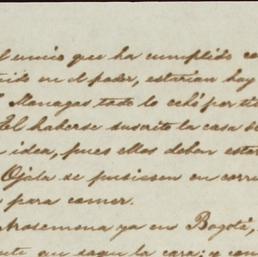 el unico que ha cumplido co
en el poder, estarian hoy
Managas todo lo echó por ti
El haberse suscrito la casa d
idea, pues ellos deben esta
Ojala se pusiesen en corri
para comer.
ya en Bogotá,
que saque la cara; y con